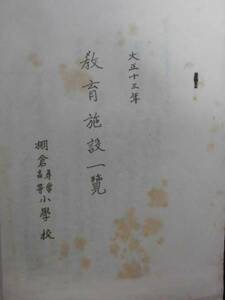 大正十三年
教育施設一覧
棚倉尋常高等小學校